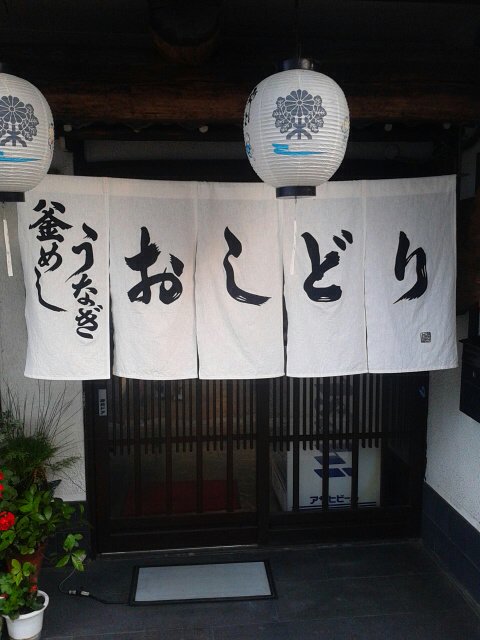 うなぎ
釜めし
おしどり
アサヒビール